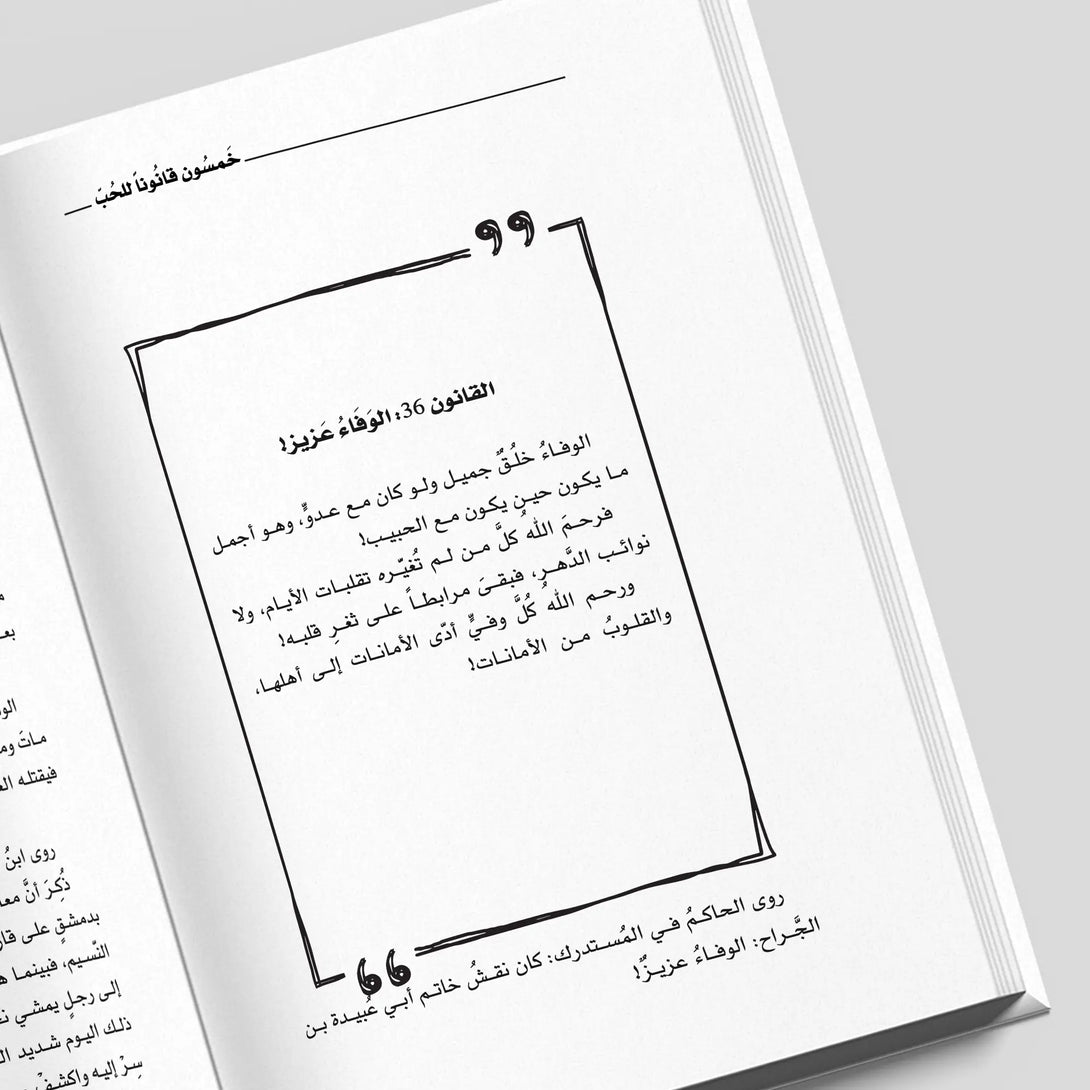 خَمسُون قانُوناً للحُبّ
القانون 36: الوَفَاءُ عَزيز!
الوفاءُ خلُقٌ جميل ولو كان مع عدوٍّ، وهو أجمل
ما يكون حين يكون مع الحبيب!
فرحمَ اللهُ كلَّ من لم تُغيّره تقلبات الأيام، ولا
نوائب الدَّهرِ، فبقىَ مرابطاً على ثغرِ قلبه!
ورحم اللهُ كُلَّ وفيٍّ أدّى الأمانات إلى أهلها،
والقلوبُ من الأمانات!
روى الحاكمُ في المُستدرك: كان نقشُ خاتم أبي عُبيدة بن
الجَّراح: الوفاءُ عزيزٌ!
الو
ماتَ وم
فيقتله ال
روى ابنُ
ذُكِرَ أنَّ معا
بدمشقٍ على قار
النَّسيم، فبينما ه
إلى رجلٍ يمشي ن
ذلك اليوم شديد ال
سِرْ إليه واكشفْ